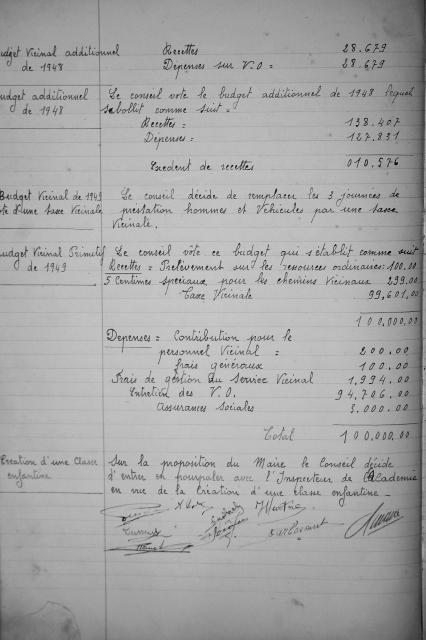 Budget Vicinal additionnel Recettes 28.679
de 1948 Dépenses sur V.O = 28.679
Budget additionnel Le conseil vote le budget additionnel de 1948 lequel
de 1948 s'etablit comme suit =
Recettes = 138.407
Dépenses = 127.831
Excedent de recettes 010.576
Budget Vicinal de 1949 Le conseil décide de remplacer les 3 journées de
Vote d'une taxe Vicinale prestation hommes et Véhicules par une taxe
Vicinale.
Budget Vicinal Primitif Le conseil vote ce budget qui s'établit comme suit
de 1949 Recettes = Prélèvement sur les ressources ordinaires 100.00
5 Centimes spéciaux pour les chemins Vicinaux 299.00
Taxe Vicinale 99.601.00
100.000.00
Dépenses = Contribution pour le
personnel Vicinal = 200.00
frais généraux 100.00
Frais de gestion du Service Vicinal 1.994.00
Entretien des V.O. 94.706.00
Assurances Sociales 3.000.00
Total 100.000.00
Création d'une Classe Sur la proposition du Maire le Conseil décide
enfantine d'entrer en pourparler avec l'Inspecteur de l'Academie
en vue de la Création d'une classe enfantine _